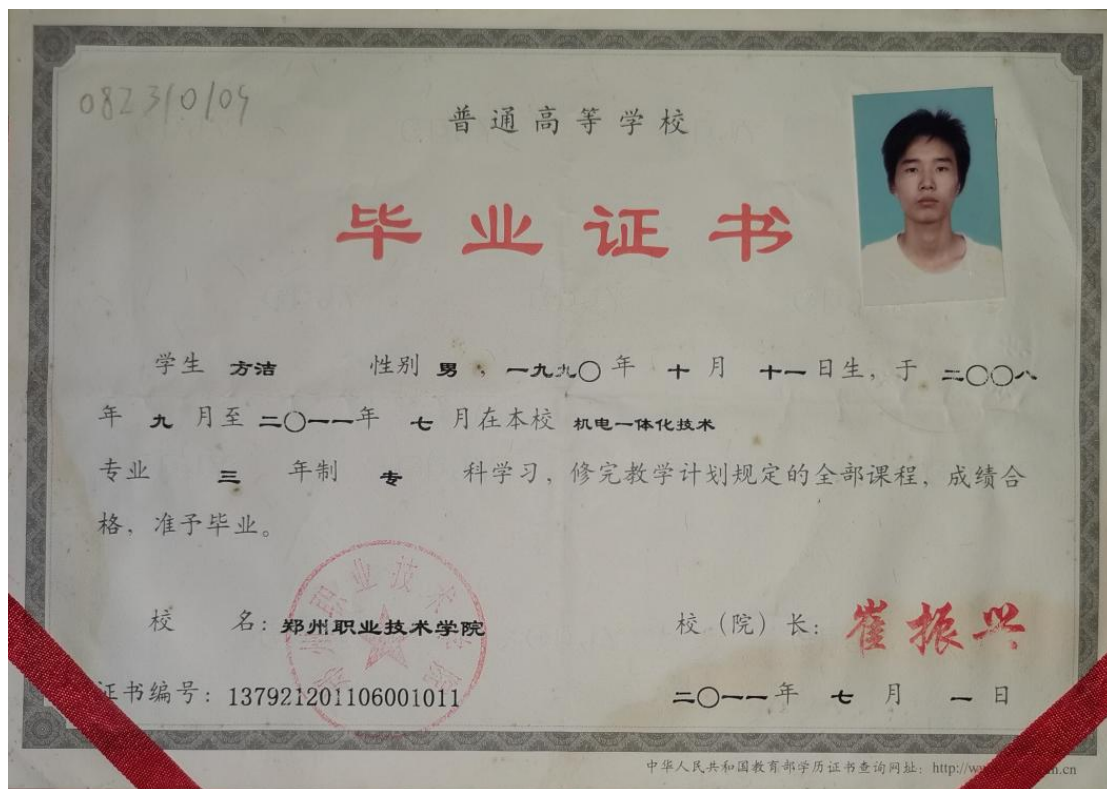 08231010
普通高等学校
毕业证书
学生 方洁 性别 男，一九九〇年 十 月 十一日生，于 二〇〇八
年 九 月至 二〇一一年 七 月在本校 机电一体化技术
专业 三 年制 专 科学习，修完教学计划规定的全部课程，成绩合
格，准予毕业。
校 名：郑州职业技术学院
校（院）长：崔振兴
证书编号：137921201106001011
二〇一一年 七 月 一 日
中华人民共和国教育部学历证书查询网址：http://w
.cn